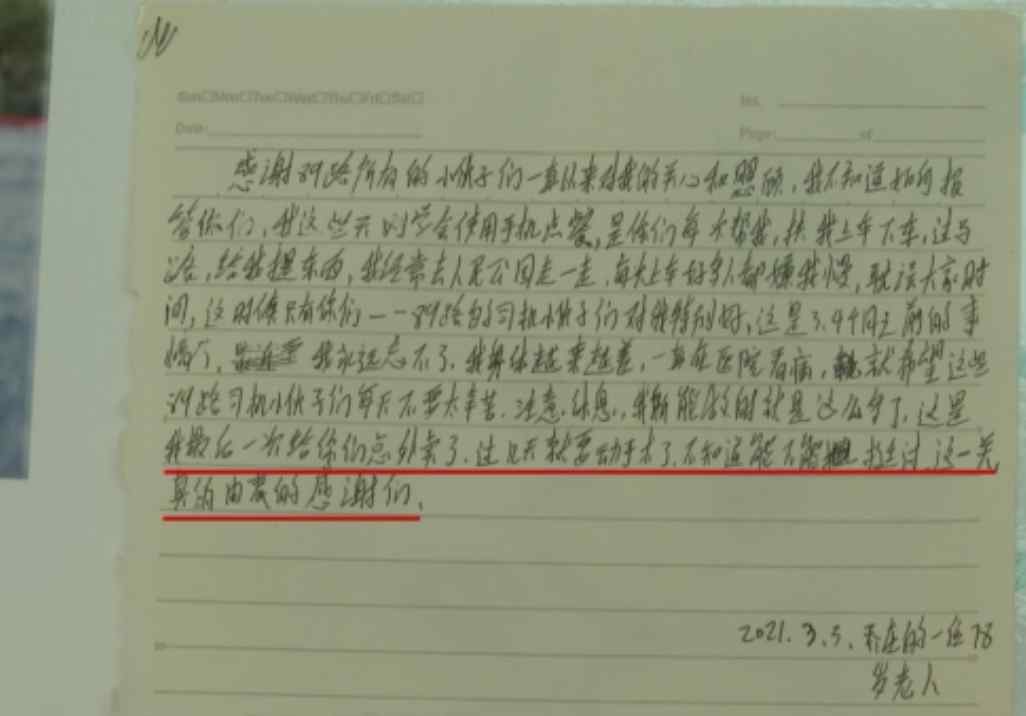 Sun□Mon□Tue□Wed□Thu□Fri□Sat□
No.
Date:
Page: of
感谢89路所有的小伙子们一直以来对我的关心和照顾，我不知道如何报
答你们，我这些天刚学会使用手机点餐，是你们每天帮我，扶我上车下车，过马
路，给我提东西，我经常去人民公园走一走，每次上车好多人都嫌我慢，耽误大家时
间，这时候只有你们一一89路的司机小伙子们对我特别好，这是3.4个月之前的事
情了，我永远忘不了，我身体越来越差，一直在医院看病，就希望这些
89路司机小伙子们每天不要太辛苦，注意休息，我所能做的就是这么多了，这是
我最后一次给你们点外卖了，过几天就要动手术了，不知道能不能挺过这一关
真的由衷的感谢你们，
2021.3.5、乔庄的一位78
岁老人